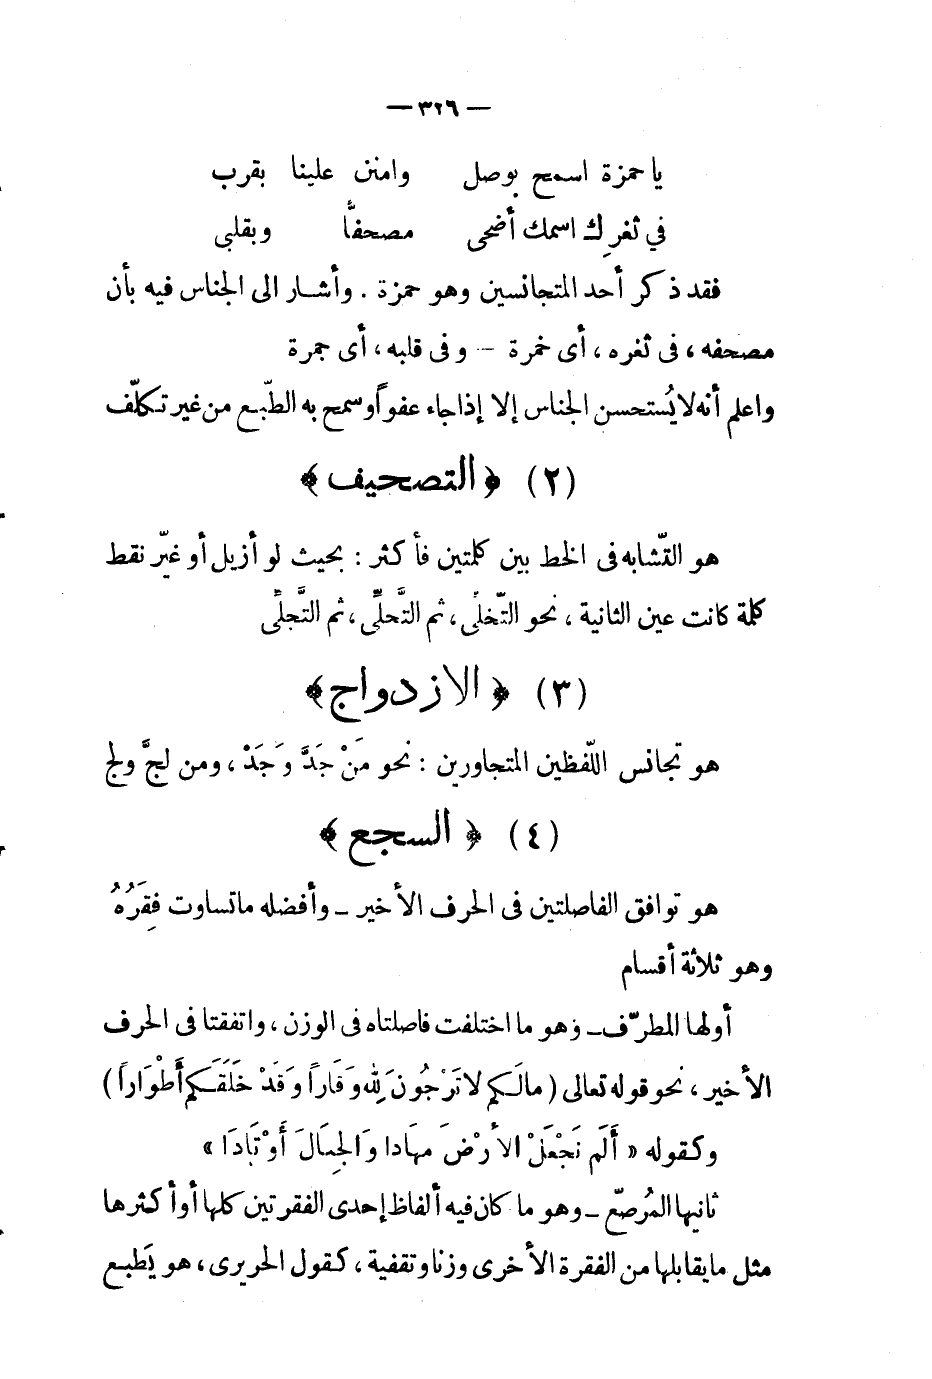 — ٣٢٦ —
يا حمزة اسمح بوصل وامنن علينا بقرب
في ثغرك اسمك أضحى مصحفًّا وبقلبى
فقد ذكر أحد المتجانسين وهو حمزة . وأشار الى الجناس فيه بأن
مصحفه ، فى ثغره ، أى خمرة – و فى قلبه ، أى جمرة
واعلم أنه لا يُستحسن الجناس إلا إذا جاء عفواً وسمح به الطّبع من غير تكلّف
(٢) ﴿ التصحيف ﴾
هو التّشابه فى الخط بين كلمتين فأكثر : بحيث لو أزيل أو غيّر نقط
كلمة كانت عين الثانية ، نحو التّخلّى ، ثم التَّحلِّى ، ثم التَّجلِّى
(٣) ﴿ الازدواج ﴾
هو تجانس اللّفظين المتجاورين : نحو مَنْ جَدَّ وَجَدْ ، ومن لجَّ ولج
(٤) ﴿ السجع ﴾
هو توافق الفاصلتين فى الحرف الأخير ــ وأفضله ما تساوت فِقَرُهُ
وهو ثلاثة أقسام
أولها المطرّف ــ وهو ما اختلفت فاصلتاه فى الوزن ، واتفقتا فى الحرف
الأخير ، نحو قوله تعالى ( مالَكم لا تَرْجُونَ لِلهِ وَقَاراً وَقَدْ خَلَقَكم أَطْوَاراً )
وكقوله « أَلَم نَجْعَلْ الأَرْضَ مهَادا وَالجِبَالَ أَوْتَادَا »
ثانيها المُرصّع ــ وهو ما كان فيه ألفاظ إحدى الفقرتين كلها أو أكثرها
مثل ما يقابلها من الفقرة الأخرى وزنا وتقفية ، كقول الحريرى ، هو يَطبع